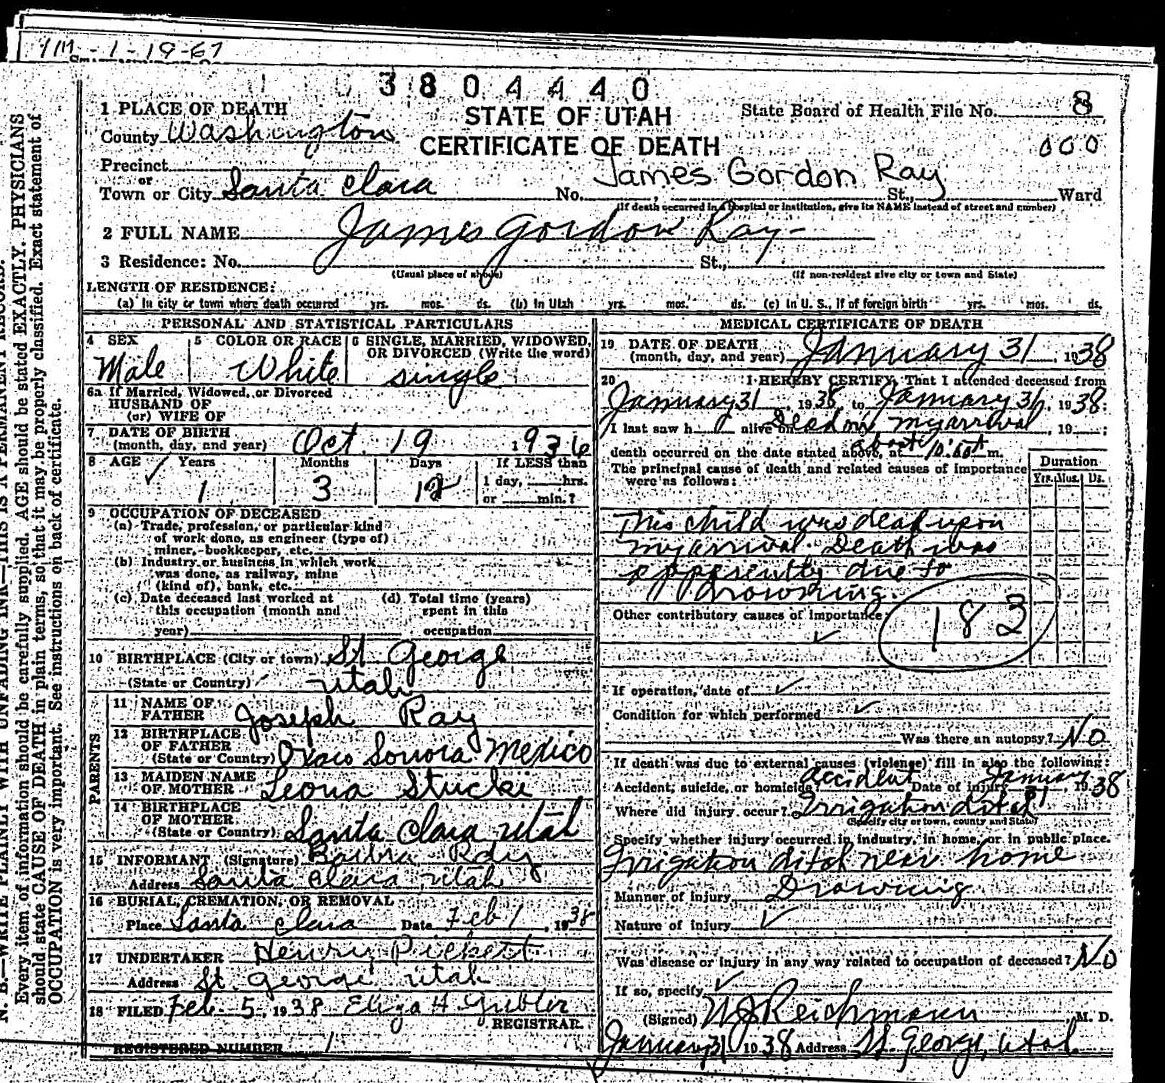 1M - 1-19-67
3804440
1 PLACE OF DEATH
STATE OF UTAH
State Board of Health File No. 8
County Washington
CERTIFICATE OF DEATH
000
Precinct
or
James Gordon Ray
Town or City Santa Clara No. St., Ward
(If death occurred in a hospital or institution, give its NAME instead of street and number)
2 FULL NAME James Gordon Ray
3 Residence: No. St.,
(Usual place of abode) (If non-resident give city or town and State)
LENGTH OF RESIDENCE:
(a) In city or town where death occurred yrs. mos. ds. (b) In Utah yrs. mos. ds. (c) In U. S., if of foreign birth yrs. mos. ds.
PERSONAL AND STATISTICAL PARTICULARS
4 SEX 5 COLOR OR RACE 6 SINGLE, MARRIED, WIDOWED,
OR DIVORCED (Write the word)
Male White single
6a If Married, Widowed, or Divorced
HUSBAND OF
(or) WIFE OF
7 DATE OF BIRTH
(month, day, and year) Oct. 19 1936
8 AGE Years Months Days If LESS than
1 3 12 1 day, hrs.
or min.?
9 OCCUPATION OF DECEASED
(a) Trade, profession, or particular kind
of work done, as engineer (type of)
miner, bookkeeper, etc.
(b) Industry or business in which work
was done, as railway, mine
(kind of), bank, etc.
(c) Date deceased last worked at (d) Total time (years)
this occupation (month and spent in this
year) occupation
10 BIRTHPLACE (City or town) St George
(State or Country) Utah
PARENTS
11 NAME OF
FATHER Joseph Ray
12 BIRTHPLACE
OF FATHER
(State or Country) Oxaco Sonora Mexico
13 MAIDEN NAME
OF MOTHER Leona Stucki
14 BIRTHPLACE
OF MOTHER
(State or Country) Santa Clara Utah
15 INFORMANT (Signature) Ray
Address Santa Clara Utah
16 BURIAL, CREMATION, OR REMOVAL
Place Santa Clara Date Feb 1, 1938
17 UNDERTAKER Henry Pickett
Address St. George Utah
18 FILED Feb 5, 1938 Eliza H Gubler
REGISTRAR.
REGISTERED NUMBER 1
MEDICAL CERTIFICATE OF DEATH
19 DATE OF DEATH
(month, day, and year) January 31, 1938
20 I HEREBY CERTIFY, That I attended deceased from
January 31, 1938 to January 31, 1938
I last saw h alive on Dead on my arrival, 19 ;
about
death occurred on the date stated above, at m.
The principal cause of death and related causes of importance
were as follows:
Duration
Yrs. Mos. Ds.
This child was dead upon
my arrival. Death was
apparently due to
Drowning.
Other contributory causes of importance
183
If operation, date of
Condition for which performed
Was there an autopsy? No
If death was due to external causes (violence) fill in also the following:
Accident, suicide, or homicide? accident Date of injury January 31, 1938
Where did injury occur? Irrigation ditch
(Specify city or town, county and State)
Specify whether injury occurred in industry, in home, or in public place.
Irrigation ditch near home
Manner of injury Drowning
Nature of injury
Was disease or injury in any way related to occupation of deceased? No
If so, specify
(Signed) W J Reichmann, M. D.
January 31 1938 Address St. George, Utah
N. B.—WRITE PLAINLY WITH UNFADING INK—THIS IS A PERMANENT RECORD.
Every item of information should be carefully supplied. AGE should be stated EXACTLY. PHYSICIANS
should state CAUSE OF DEATH in plain terms, so that it may be properly classified. Exact statement of
OCCUPATION is very important. See instructions on back of certificate.